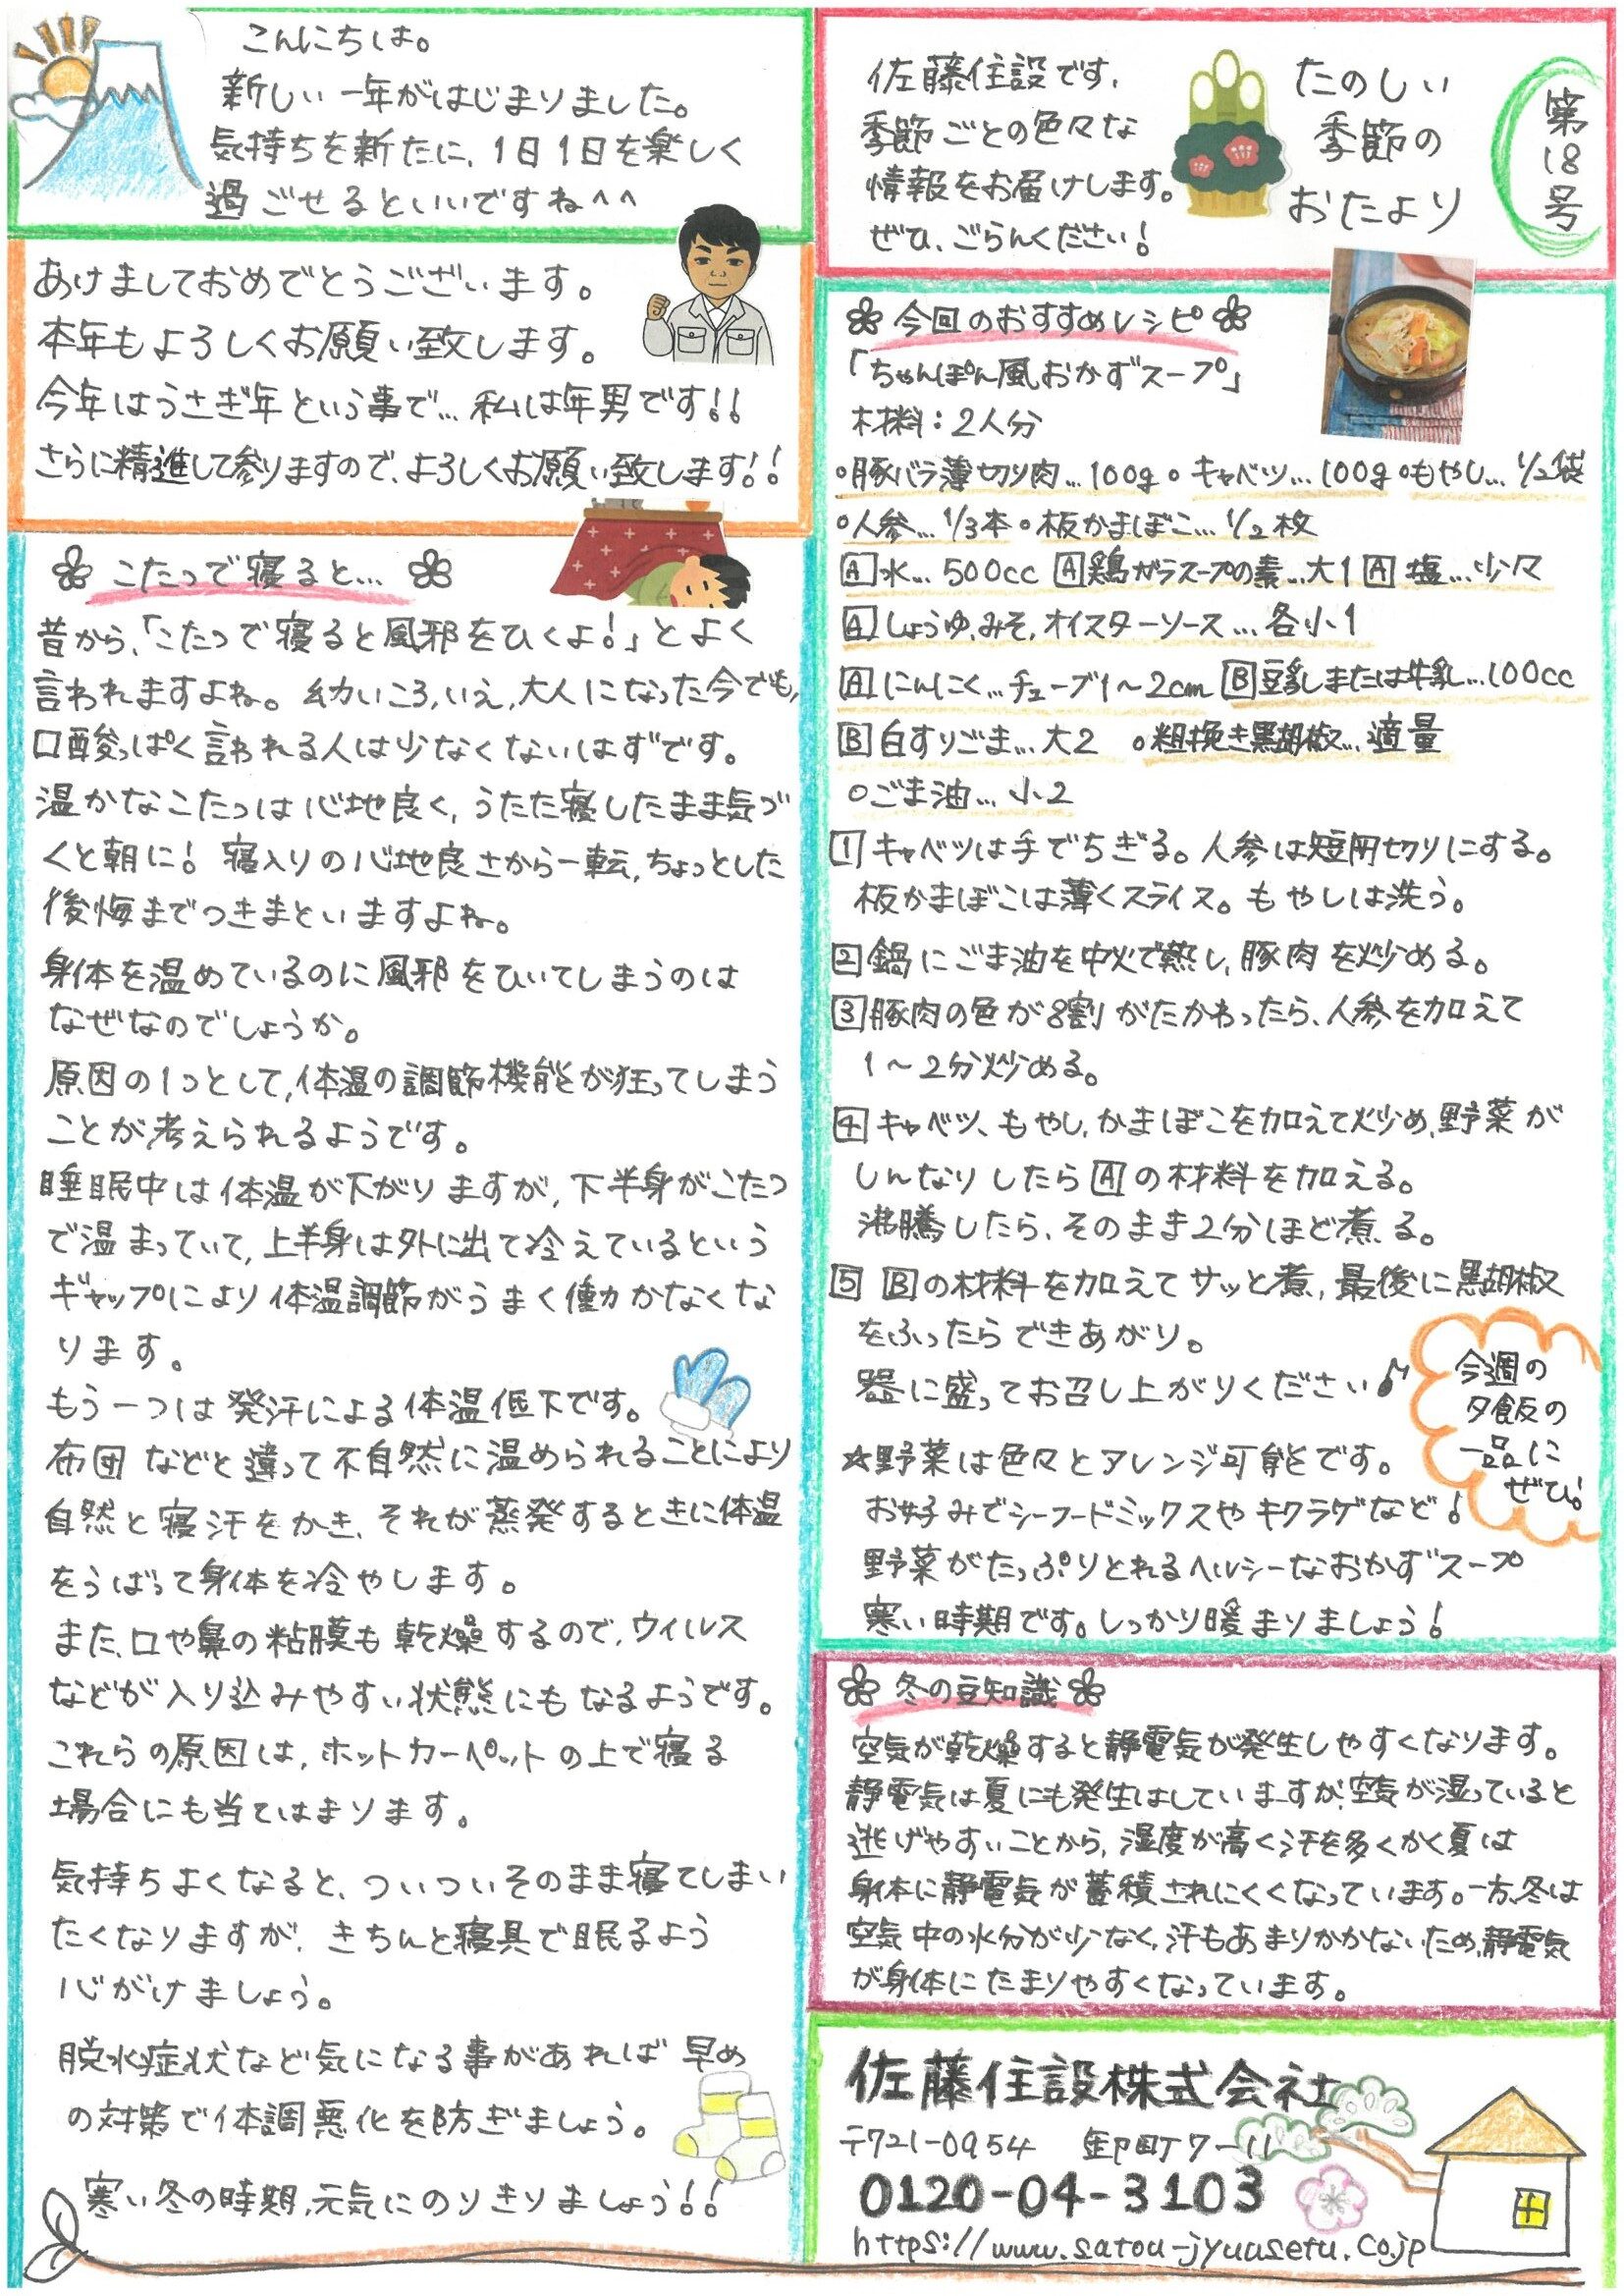 こんにちは。
新しい一年がはじまりました。
気持ちを新たに、1日1日を楽しく
過ごせるといいですね^^
佐藤住設です。
季節ごとの色々な
情報をお届けします。
ぜひ、ごらんください!
たのしい
季節の
おたより
第18号
あけましておめでとうございます。
本年もよろしくお願い致します。
今年はうさぎ年という事で…私は年男です!!
さらに精進して参りますので、よろしくお願い致します!!
こたつで寝ると…
昔から、「こたつで寝ると風邪をひくよ!」とよく
言われますよね。幼いころ、いえ、大人になった今でも、
口酸っぱく言われる人は少なくないはずです。
温かなこたつは心地良く、うたた寝したまま気づ
くと朝に!寝入りの心地良さから一転、ちょっとした
後悔までつきまといますよね。
身体を温めているのに風邪をひいてしまうのは
なぜなのでしょうか。
原因の1つとして、体温の調節機能が狂ってしまう
ことが考えられるようです。
睡眠中は体温が下がりますが、下半身がこたつ
で温まっていて、上半身は外に出て冷えているという
ギャップにより体温調節がうまく働かなくな
ります。
もう一つは発汗による体温低下です。
布団などと違って不自然に温められることにより
自然と寝汗をかき、それが蒸発するときに体温
をうばって身体を冷やします。
また、口や鼻の粘膜も乾燥するので、ウィルス
などが入り込みやすい状態にもなるようです。
これらの原因は、ホットカーペットの上で寝る
場合にも当てはまります。
気持ちよくなると、ついついそのまま寝てしまい
たくなりますが、きちんと寝具で眠るよう
心がけましょう。
脱水症状など気になる事があれば早め
の対策で体調悪化を防ぎましょう。
寒い冬の時期、元気にのりきりましょう!!
今回のおすすめレシピ
「ちゃんぽん風おかずスープ」
材料:2人分
○豚バラ薄切り肉…100g○キャベツ…100g○もやし…1/2袋
○人参…1/3本○板かまぼこ…1/2枚
A水…500cc A鶏ガラスープの素…大1 A塩…少々
Aしょうゆ、みそ、オイスターソース…各小1
Aにんにく…チューブ1~2cm B豆乳または牛乳…100cc
B白すりごま…大2 ○粗挽き黒胡椒…適量
○ごま油…小2
1キャベツは手でちぎる。人参は短冊切りにする。
板かまぼこは薄くスライス。もやしは洗う。
2鍋にごま油を中火で熱し、豚肉を炒める。
3豚肉の色が8割がたかわったら、人参を加えて
1~2分炒める。
4キャベツ、もやし、かまぼこを加えて炒め、野菜が
しんなりしたらAの材料を加える。
沸騰したら、そのまま2分ほど煮る。
5 Bの材料を加えてサッと煮、最後に黒胡椒
をふったらできあがり。
器に盛ってお召し上がりください♪
今週の
夕飯の
一品に
ぜひ!
☆野菜は色々とアレンジ可能です。
お好みでシーフードミックスやキクラゲなど!
野菜がたっぷりとれるヘルシーなおかずスープ
寒い時期です。しっかり暖まりましょう!
冬の豆知識
空気が乾燥すると静電気が発生しやすくなります。
静電気は夏にも発生はしていますが、空気が湿っていると
逃げやすいことから、湿度が高く汗を多くかく夏は
身体に静電気が蓄積されにくくなっています。一方、冬は
空気中の水分が少なく、汗もあまりかかないため、静電気
が身体にたまりやすくなっています。
佐藤住設株式会社
〒721-0954 卸町7-11
0120-04-3103
https://www.satou-jyuusetu.co.jp